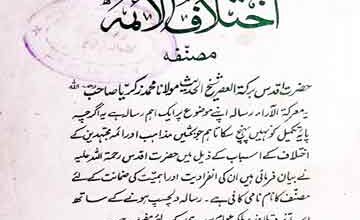 اختلاف الائمہ
مصنفہ
حضرت اقدس برکۃ العصر شیخ الحدیث مولانا محمد زکریا صاحب رحمہ اللہ
یہ معرکۃ الآراء رسالہ اپنے موضوع پر ایک اہم رسالہ ہے یہ اگرچہ
پایہ تکمیل کو نہیں پہنچ سکا تاہم جو بحثیں مذاہب اور ائمہ مجتہدین کے
اختلاف کے اسباب کے ذیل میں حضرت اقدس رحمۃ اللہ علیہ
نے بیان فرمائی ہیں ان کی انفرادیت اور اہمیت کی ضمانت کے لئے
مصنف کا نام نامی کافی ہے۔ رسالہ دلچسپ ہونے کے ساتھ